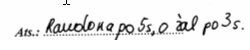 Ats.: Raudona po 5s, o žal po 3s.